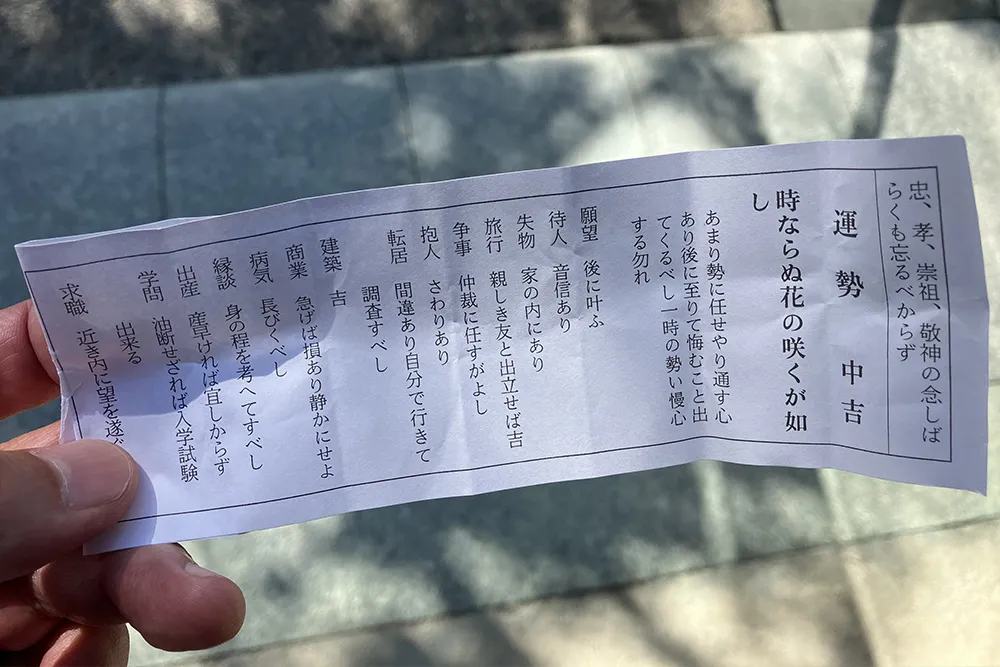 忠、孝、崇祖、敬神の念しば
らくも忘るべからず
運勢 中吉
時ならぬ花の咲くが如
し
あまり勢に任せやり通す心
あり後に至りて悔むこと出
てくるべし一時の勢い慢心
する勿れ
願望 後に叶ふ
待人 音信あり
失物 家の内にあり
旅行 親しき友と出立せば吉
争事 仲裁に任すがよし
抱人 さわりあり
転居 間違あり自分で行きて
調査すべし
建築 吉
商業 急げば損あり静かにせよ
病気 長びくべし
縁談 身の程を考へてすべし
出産 産早ければ宜しからず
学問 油断せざれば入学試験
出来る
求職 近き内に望を遂